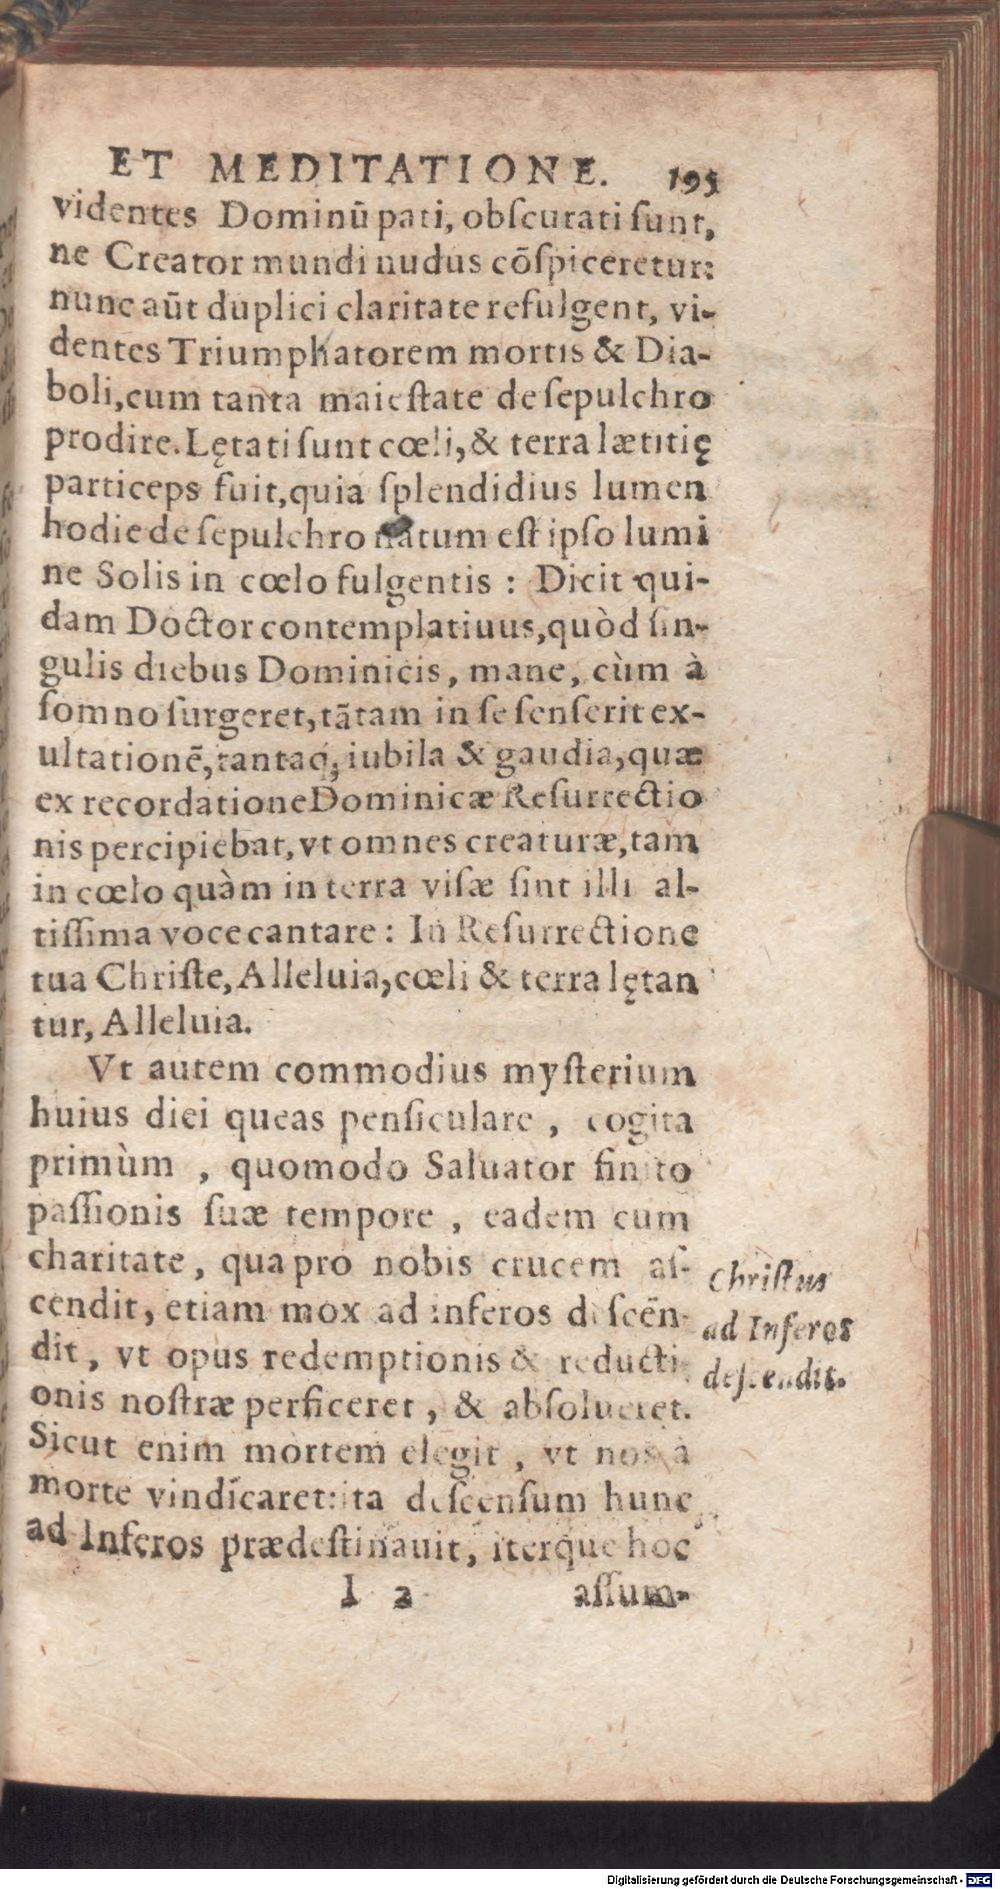 ET MEDITATIONE. 195
videntes Dominū pati, obſcurati ſunt,
ne Creator mundi nudus cōſpiceretur:
nunc aūt duplici claritate refulgent, vi-
dentes Triumphatorem mortis & Dia-
boli, cum tanta maieſtate de ſepulchro
prodire. Lętati ſunt cœli, & terra lætitię
particeps fuit, quia ſplendidius lumen
hodie de ſepulchro natum eſt ipſo lumi
ne Solis in cœlo fulgentis : Dicit qui-
dam Doctor contemplatiuus, quòd ſin-
gulis diebus Dominicis, mane, cùm à
ſomno ſurgeret, tātam in ſe ſenſerit ex-
ultationē, tantaq́; iubila & gaudia, quæ
ex recordatione Dominicæ Reſurrectio
nis percipiebat, vt omnes creaturæ, tam
in cœlo quàm in terra viſæ ſint illi al-
tiſſima voce cantare : In Reſurrectione
tua Chriſte, Alleluia, cœli & terra lętan
tur, Alleluia.
Vt autem commodius myſterium
huius diei queas penſiculare , cogita
primùm , quomodo Saluator finito
paſſionis ſuæ tempore , eadem cum
charitate, qua pro nobis crucem aſ-
cendit, etiam mox ad inferos deſcēn-
dit, vt opus redemptionis & reducti-
onis noſtræ perficeret, & abſolueret.
Sicut enim mortem elegit , vt nos à
morte vindicaret: ita deſcenſum hunc
ad Inferos prædeſtinauit, iterque hoc
I 2 aſſum-
Chriſtus
ad Inferos
deſcendit.
Digitalisierung gefördert durch die Deutsche Forschungsgemeinschaft - DFG